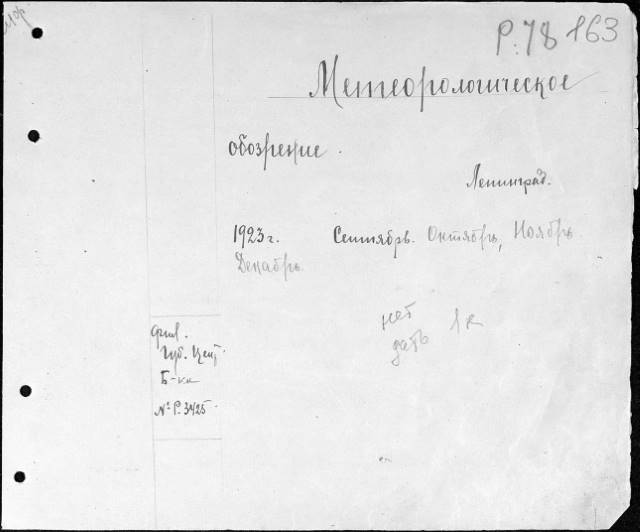 Р.78 163
Метеорологическое
обозрение.
Ленинград.
1923 г. Сентябрь. Октябрь, Ноябрь
Декабрь
нет
дать 1к
фил.
Губ. Цент.
Б-ки
№ Р. 3425.